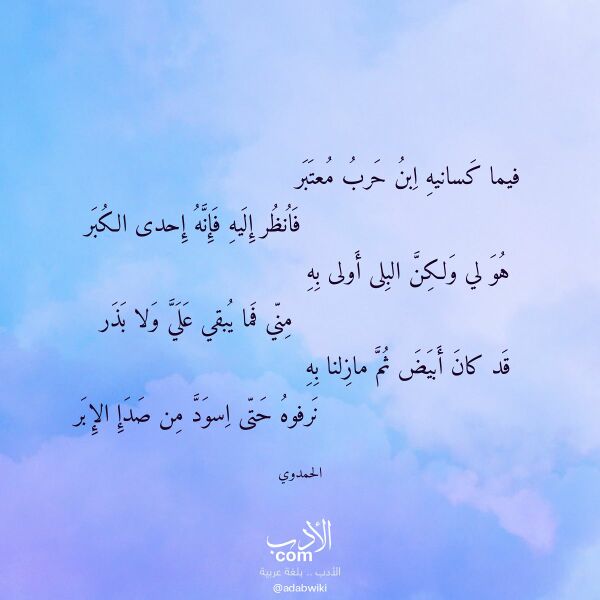 فيما كَسانيهِ اِبنُ حَربُ مُعتَبَر
فَاُنظُر إِلَيهِ فَإِنَّهُ إِحدى الكُبَر
هُوَ لي وَلكِنَّ البِلى أَولى بِهِ
مِنّي فَما يُبقي عَلَيَّ وَلا بَذَر
قَد كانَ أَبيَضَ ثُمَّ مازِلنا بِهِ
نَرفوهُ حَتّى اِسوَدَّ مِن صَدَإِ الإِبَر
الحمدوي
الأدب
com
الأدب .. بلغة عربية
@adabwiki